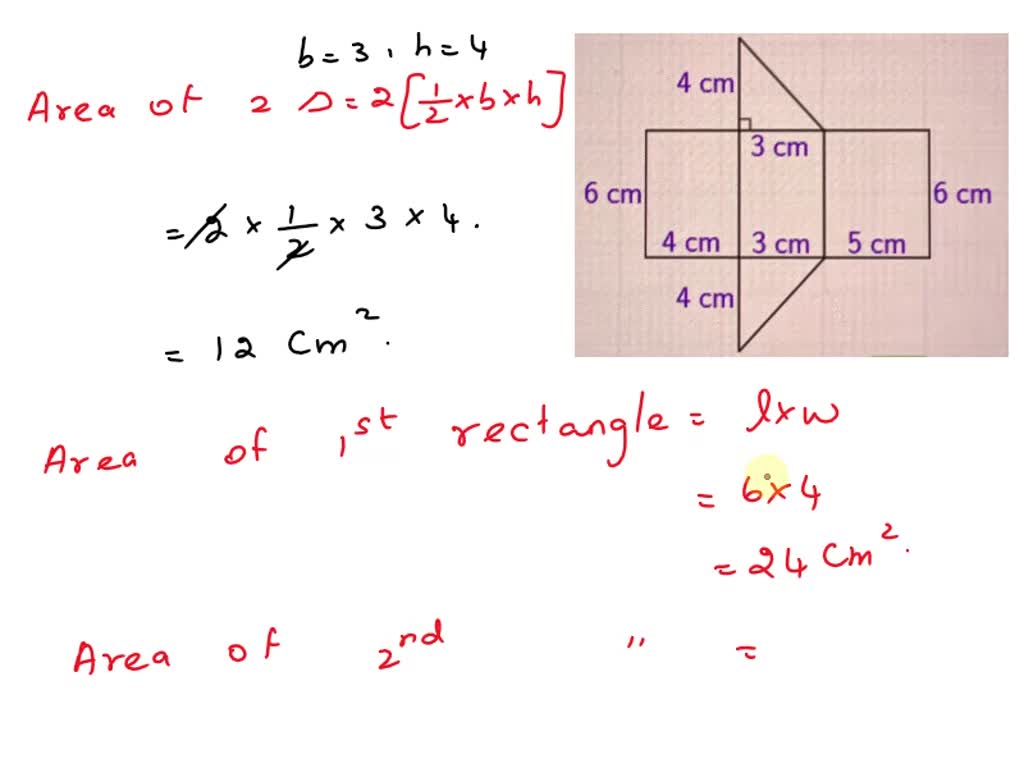 b = 3 , h = 4
Area of 2 Δ = 2 [ 1/2 × b × h ]
= 2 × 1/2 × 3 × 4 .
= 12 Cm² .
4 cm
3 cm
6 cm
6 cm
4 cm 3 cm 5 cm
4 cm
Area of 1st rectangle = l × w
= 6 × 4
= 24 Cm² .
Area of 2nd " =